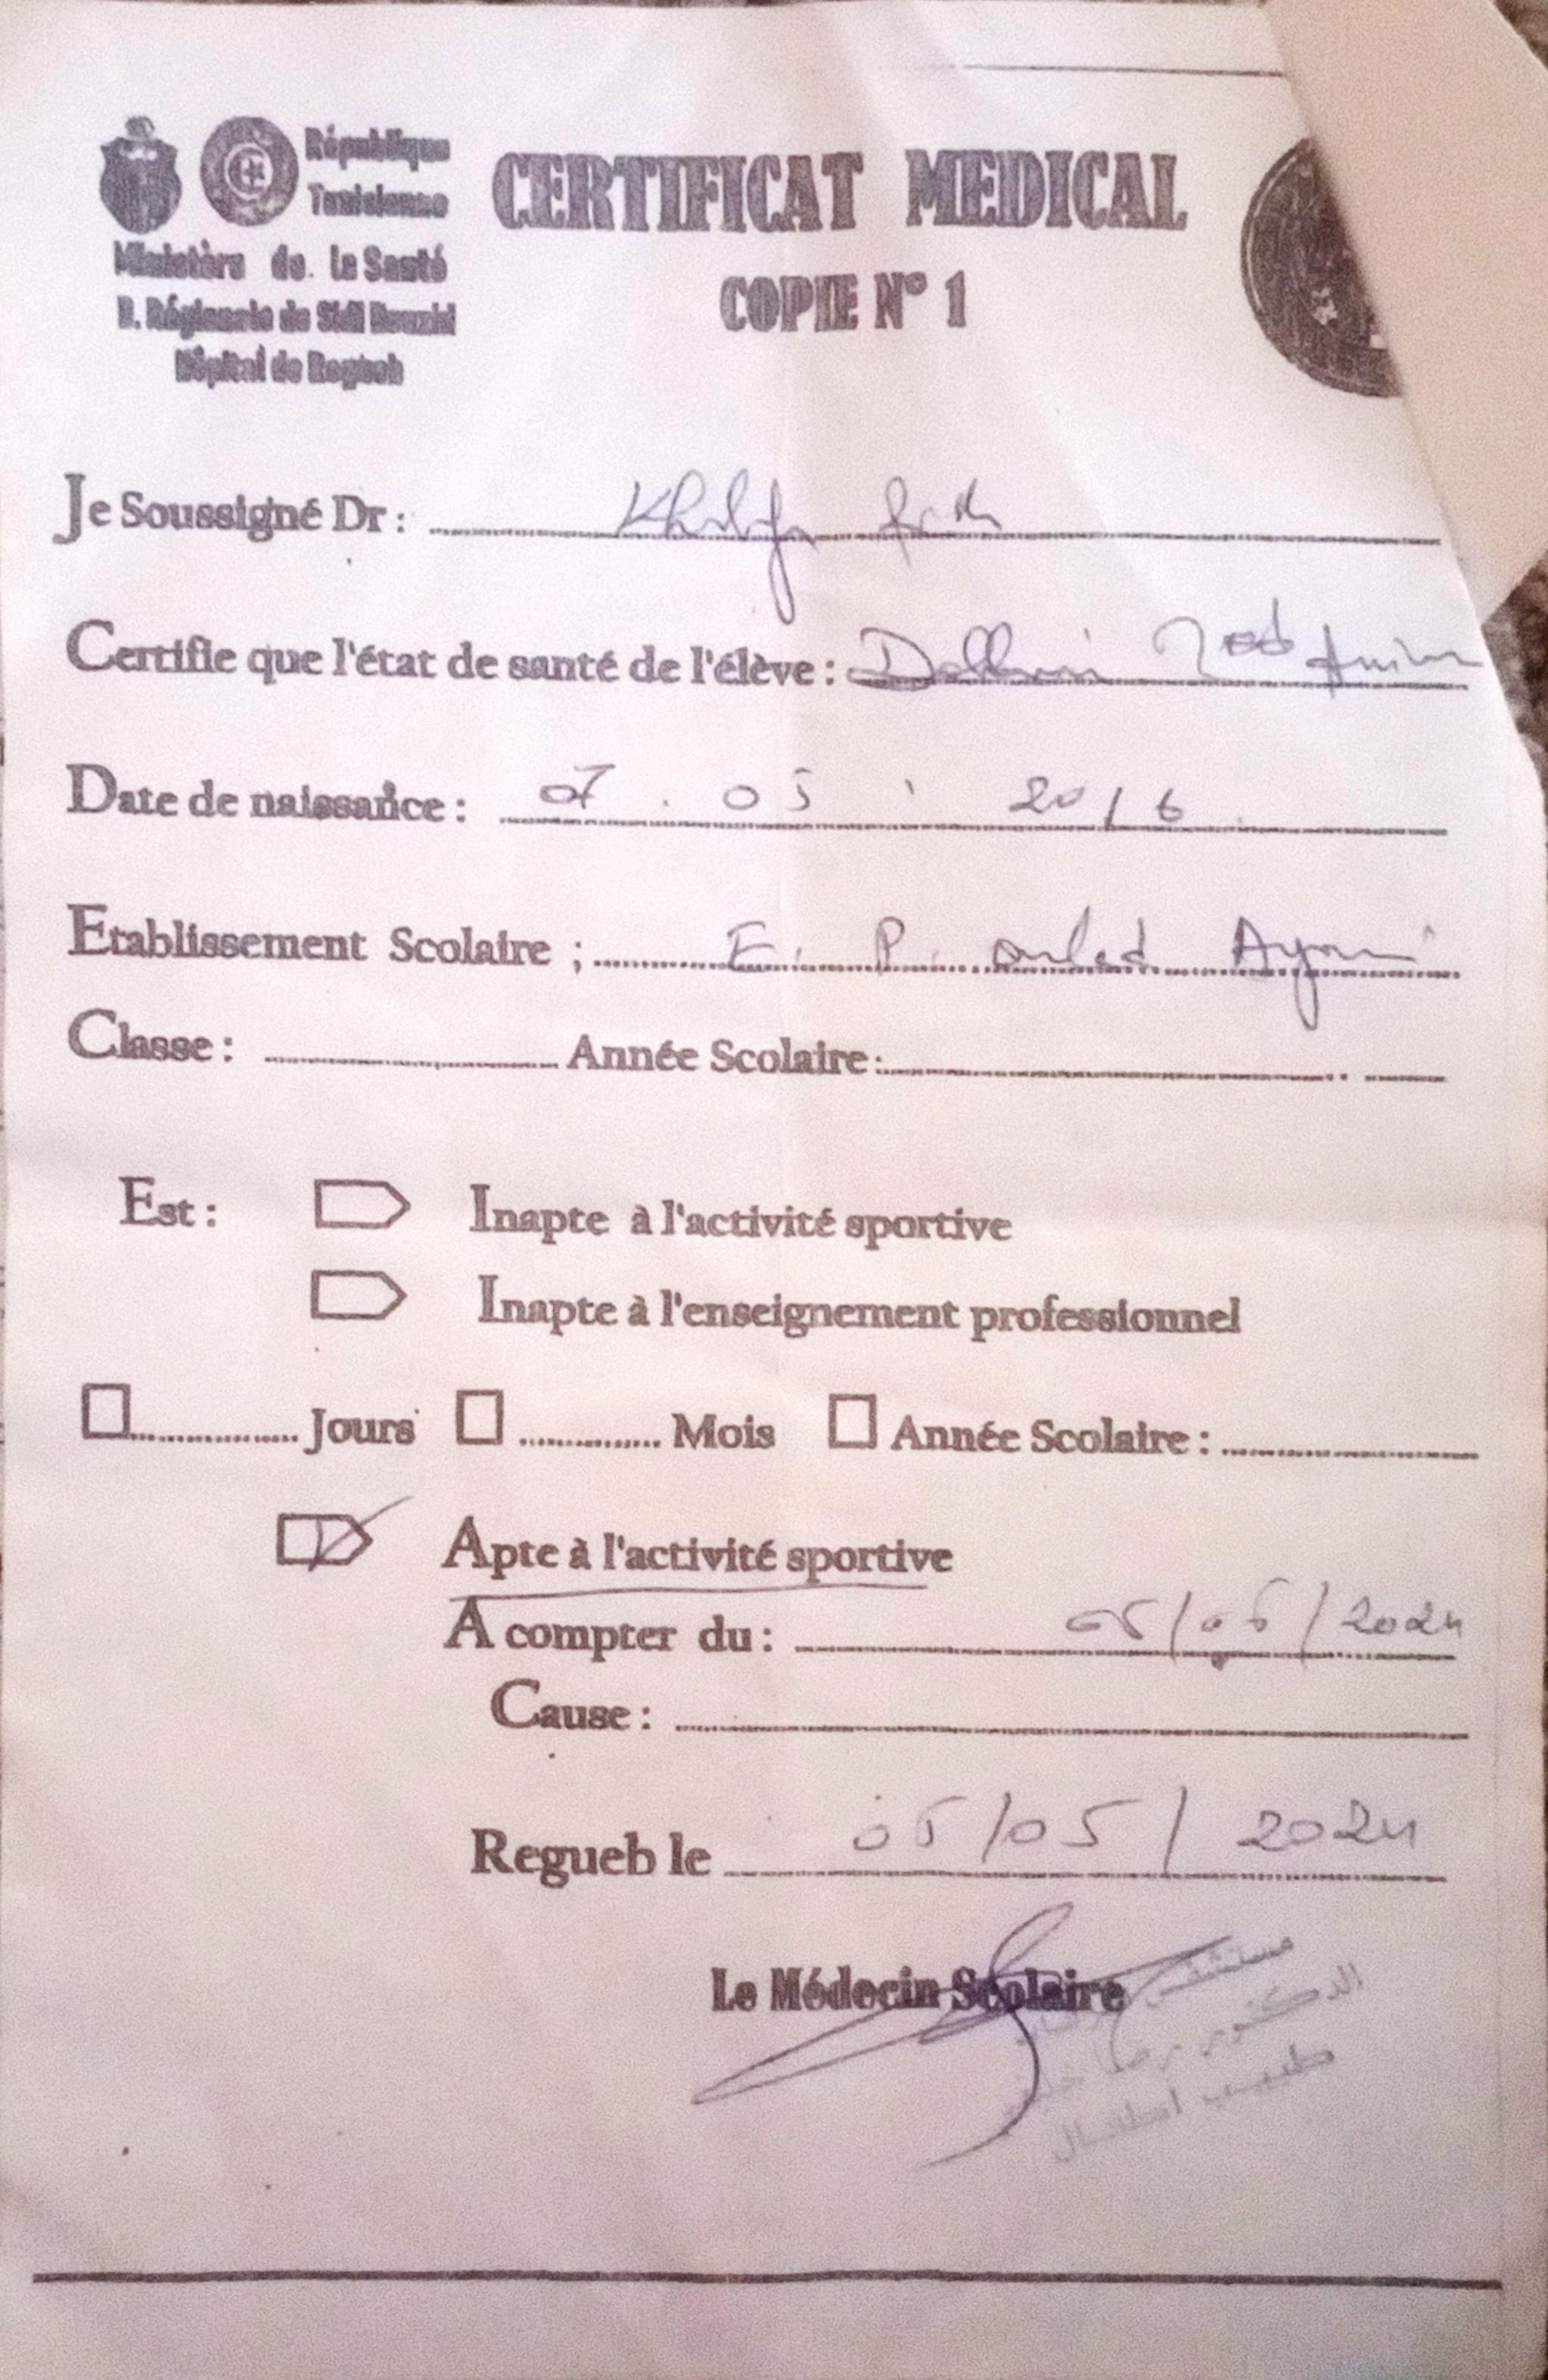 République
Tunisienne
Ministère de. le Santé
D. Régionale de Sidi Bouzid
Hôpital de Regueb
CERTIFICAT MEDICAL
COPIE N° 1
Je Soussigné Dr :
Certifie que l'état de santé de l'élève :
Date de naissance : 07 . 05 . 2016
Etablissement Scolaire ; E. P. ouled
Classe : Année Scolaire :
Est : Inapte à l'activité sportive
Inapte à l'enseignement professionnel
Jours Mois Année Scolaire :
Apte à l'activité sportive
A compter du : /2024
Cause :
Regueb le 05/05/2024
Le Médecin Scolaire
مستشفى
الدكتور
طبيب اطفال